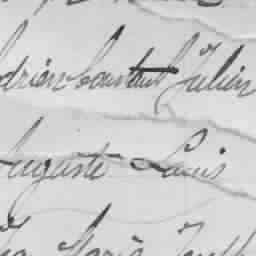 Adrien Constant Julien
Auguste Louis
Marie Joseph